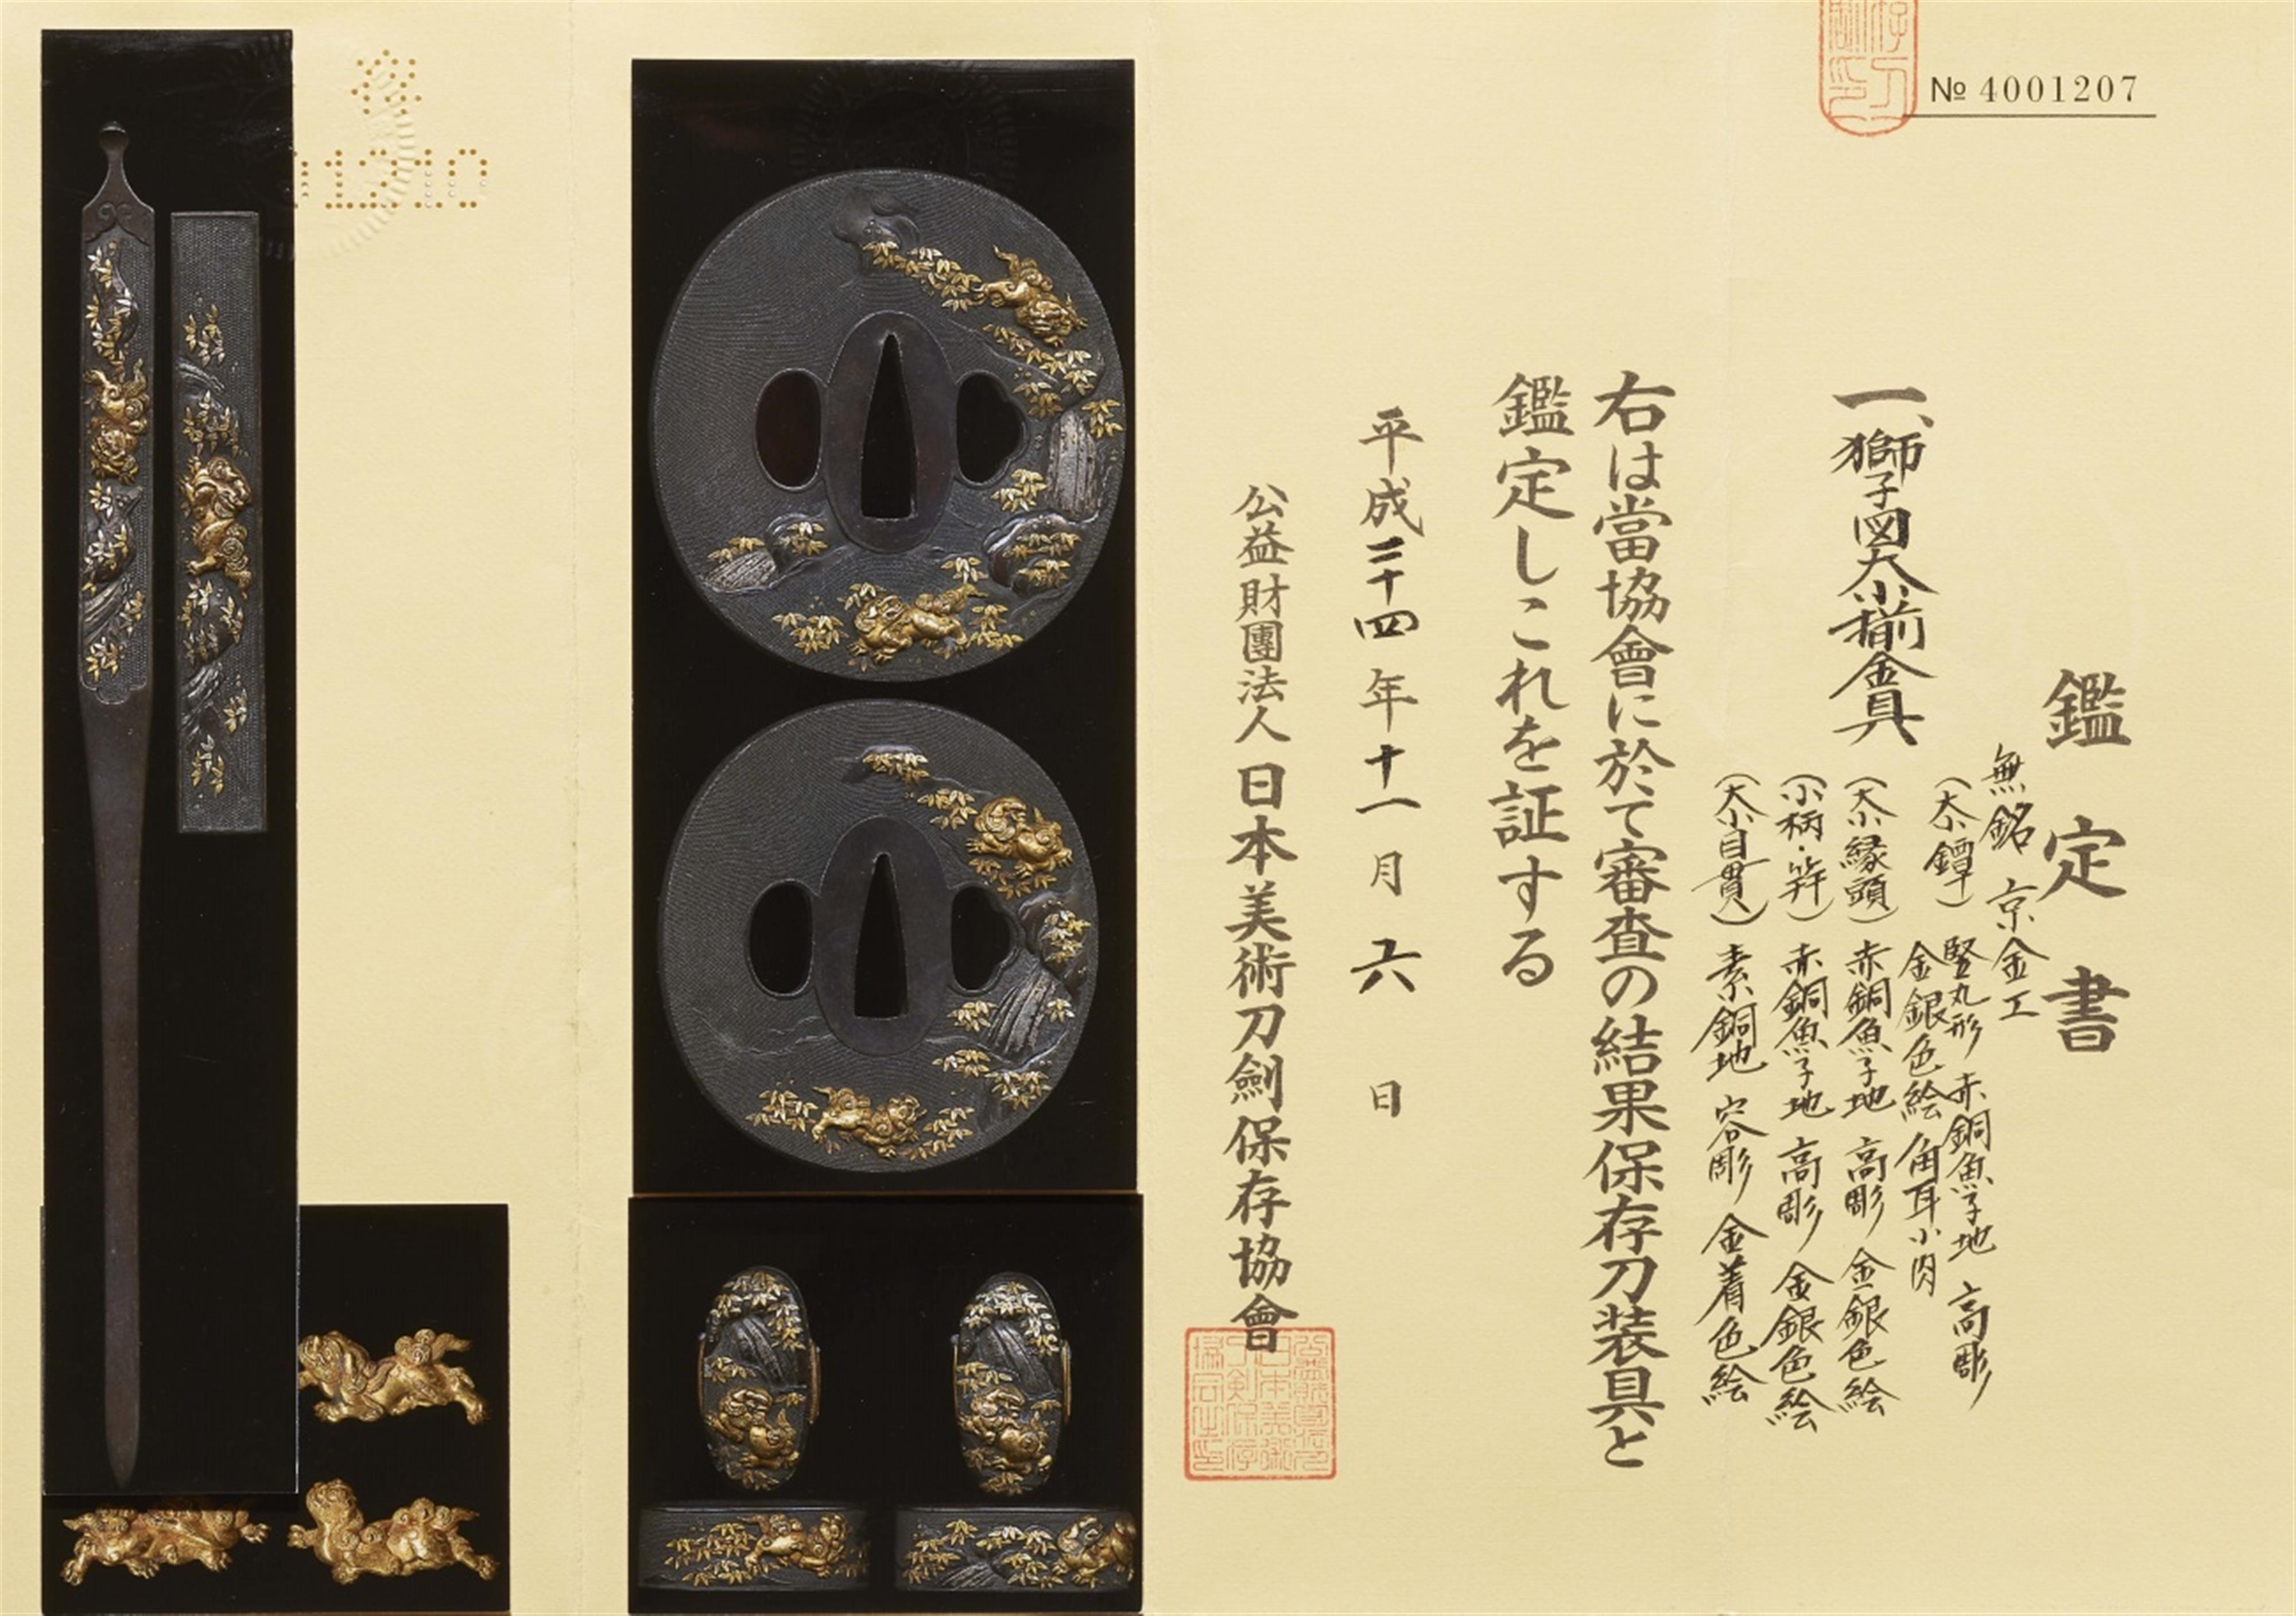 № 4001207
鑑定書
一、獅子図大小揃金具
無銘 京金工
(大小鐔) 竪丸形 赤銅魚子地 高彫
金銀色絵 角耳小肉
(大小縁頭) 赤銅魚子地 高彫 金銀色絵
(小柄・笄) 赤銅魚子地 高彫 金銀色絵
(大小目貫) 素銅地 容彫 金着色絵
右は當協會に於て審査の結果保存刀装具と
鑑定しこれを証する
平成二十四年十一月六日
公益財團法人日本美術刀劍保存協會